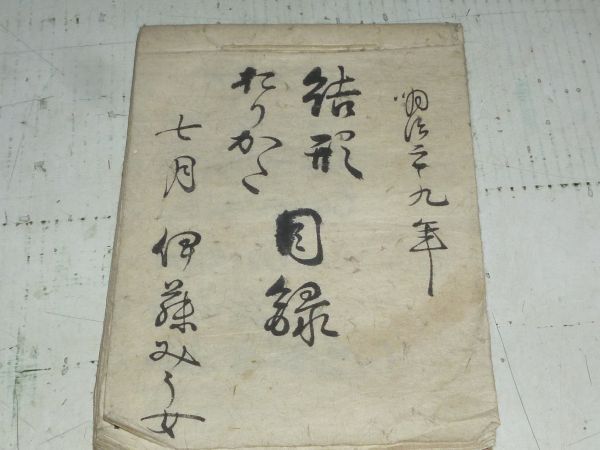 明治二十九年
結形
おりかた
目録
七月 伊藤みう女